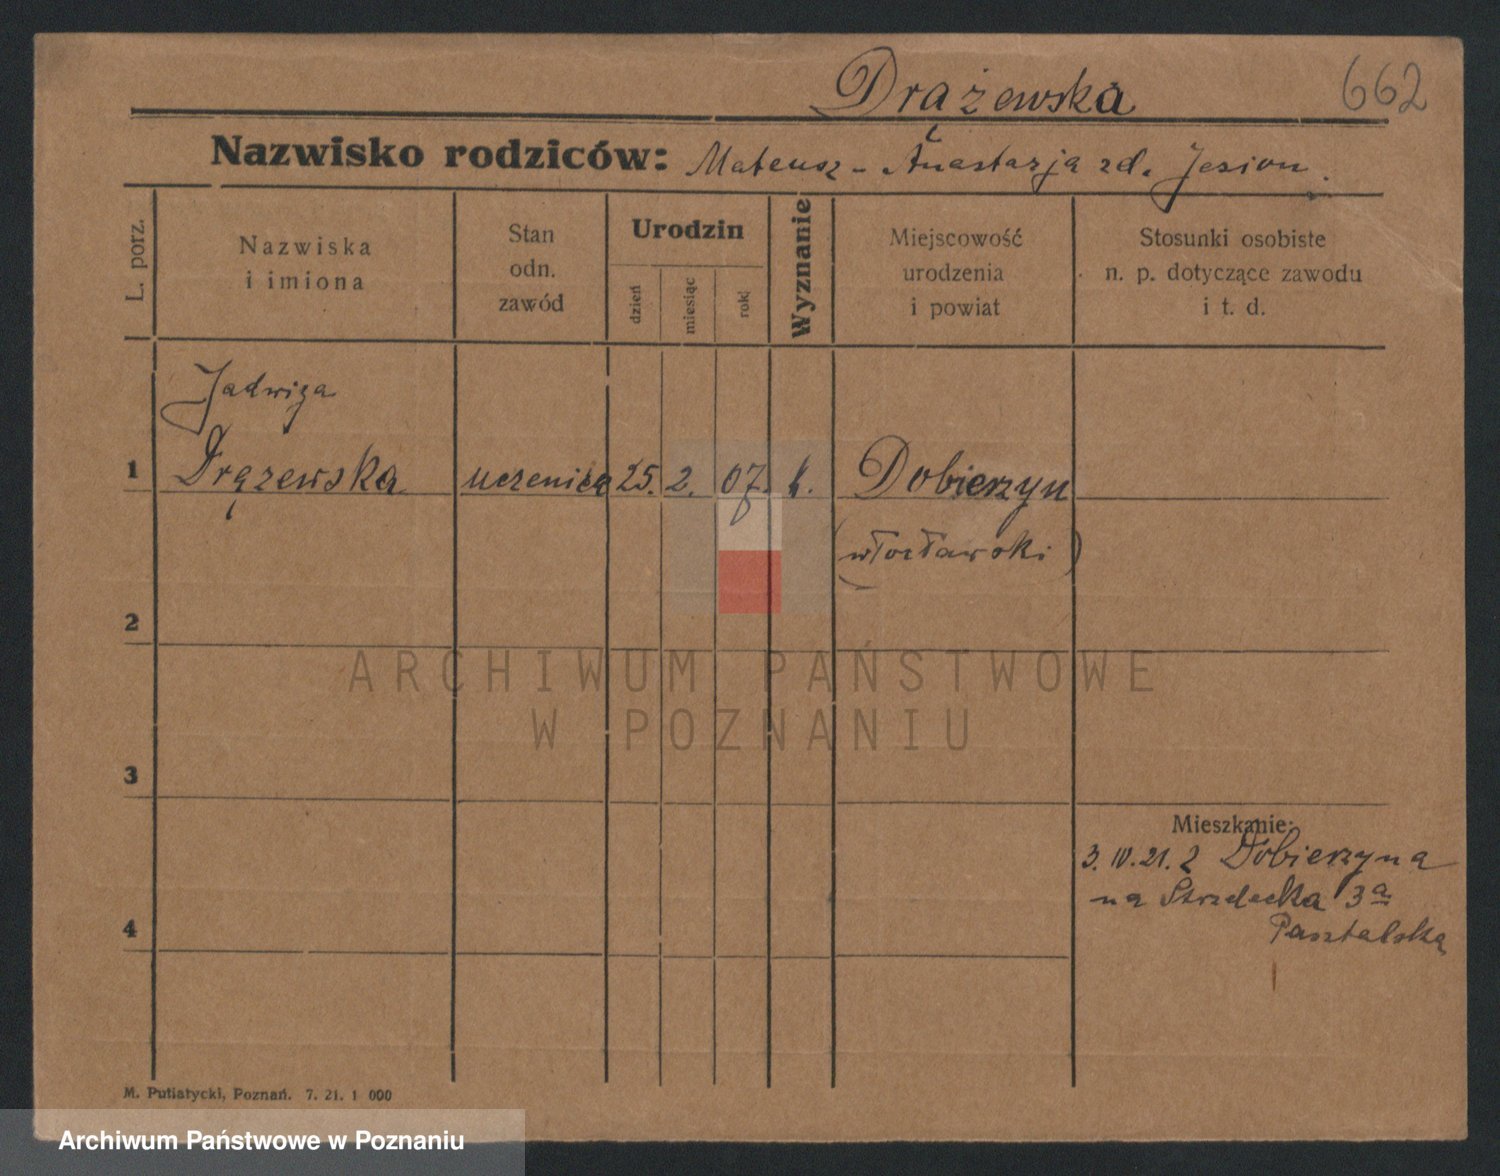 Drążewska 662
Nazwisko rodziców: Mateusz - Anastazja zd. Jesion.
L. porz.
Nazwiska
i imiona
Stan
odn.
zawód
Urodzin
dzień
miesiąc
rok
Wyznanie
Miejscowość
urodzenia
i powiat
Stosunki osobiste
n. p. dotyczące zawodu
i t. d.
Jadwiga
1 Drązewska uczenica 25. 2. 07. k. Dobierzyn
(włocławski)
2
ARCHIWUM PAŃSTWOWE
W POZNANIU
3
Mieszkanie:
3. IV. 21. z Dobierzyna
na Strzelecka 3a
4
M. Putiatycki, Poznań. 7. 21. 1 000
Archiwum Państwowe w Poznaniu